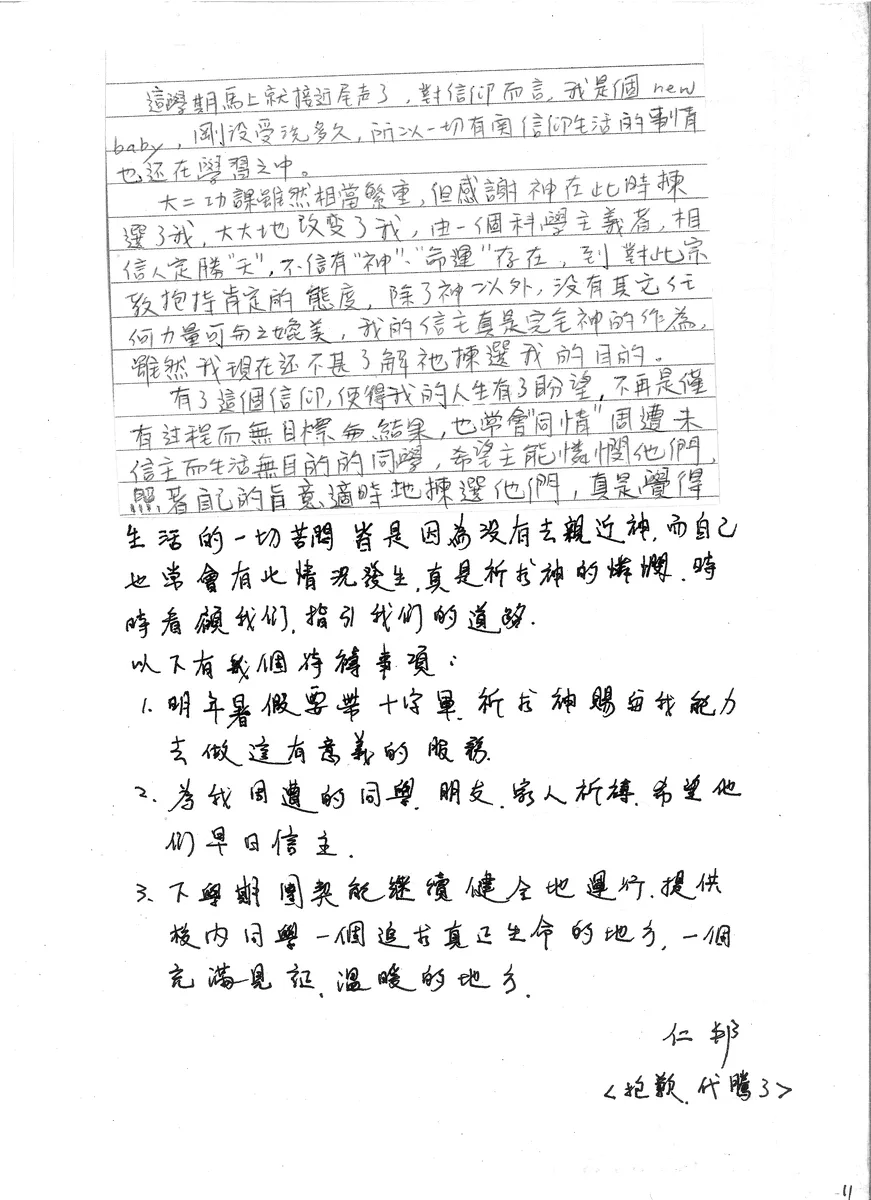 這學期馬上就接近尾声了，對信仰而言，我是個 new
baby，剛没受洗多久，所以一切有関信仰生活的事情
也还在學習之中。
大二功課雖然相當繁重，但感謝神在此時揀
選了我，大大地改变了我，由一個科學主義者，相
信人定勝"天"，不信有"神"、"命運"存在，到對此宗
教抱持肯定的態度，除了神以外，没有其它任
何力量可与之媲美，我的信主真是完全神的作為，
雖然我現在还不甚了解祂揀選我的目的。
有了這個信仰，使得我的人生有了盼望，不再是僅
有过程而無目標与結果，也常會"同情"周遭未
信主而生活無目的的同學，希望主能憐憫他們，
照著自己的旨意適時地揀選他們，真是覺得
生活的一切苦悶皆是因為没有去親近神，而自己
也常會有此情況發生，真是祈求神的憐憫，時
時看顧我们，指引我们的道路．
以下有幾個待禱事項：
1. 明年暑假要帶十字軍，祈求神賜与我能力
去做這有意義的服務．
2. 為我周遭的同學．朋友．家人祈禱．希望他
们早日信主．
3. 下學期團契能繼續健全地運行．提供
校内同學一個追求真正生命的地方，一個
充滿見証．溫暖的地方．
仁邦
<抱歉．代騰了>
11